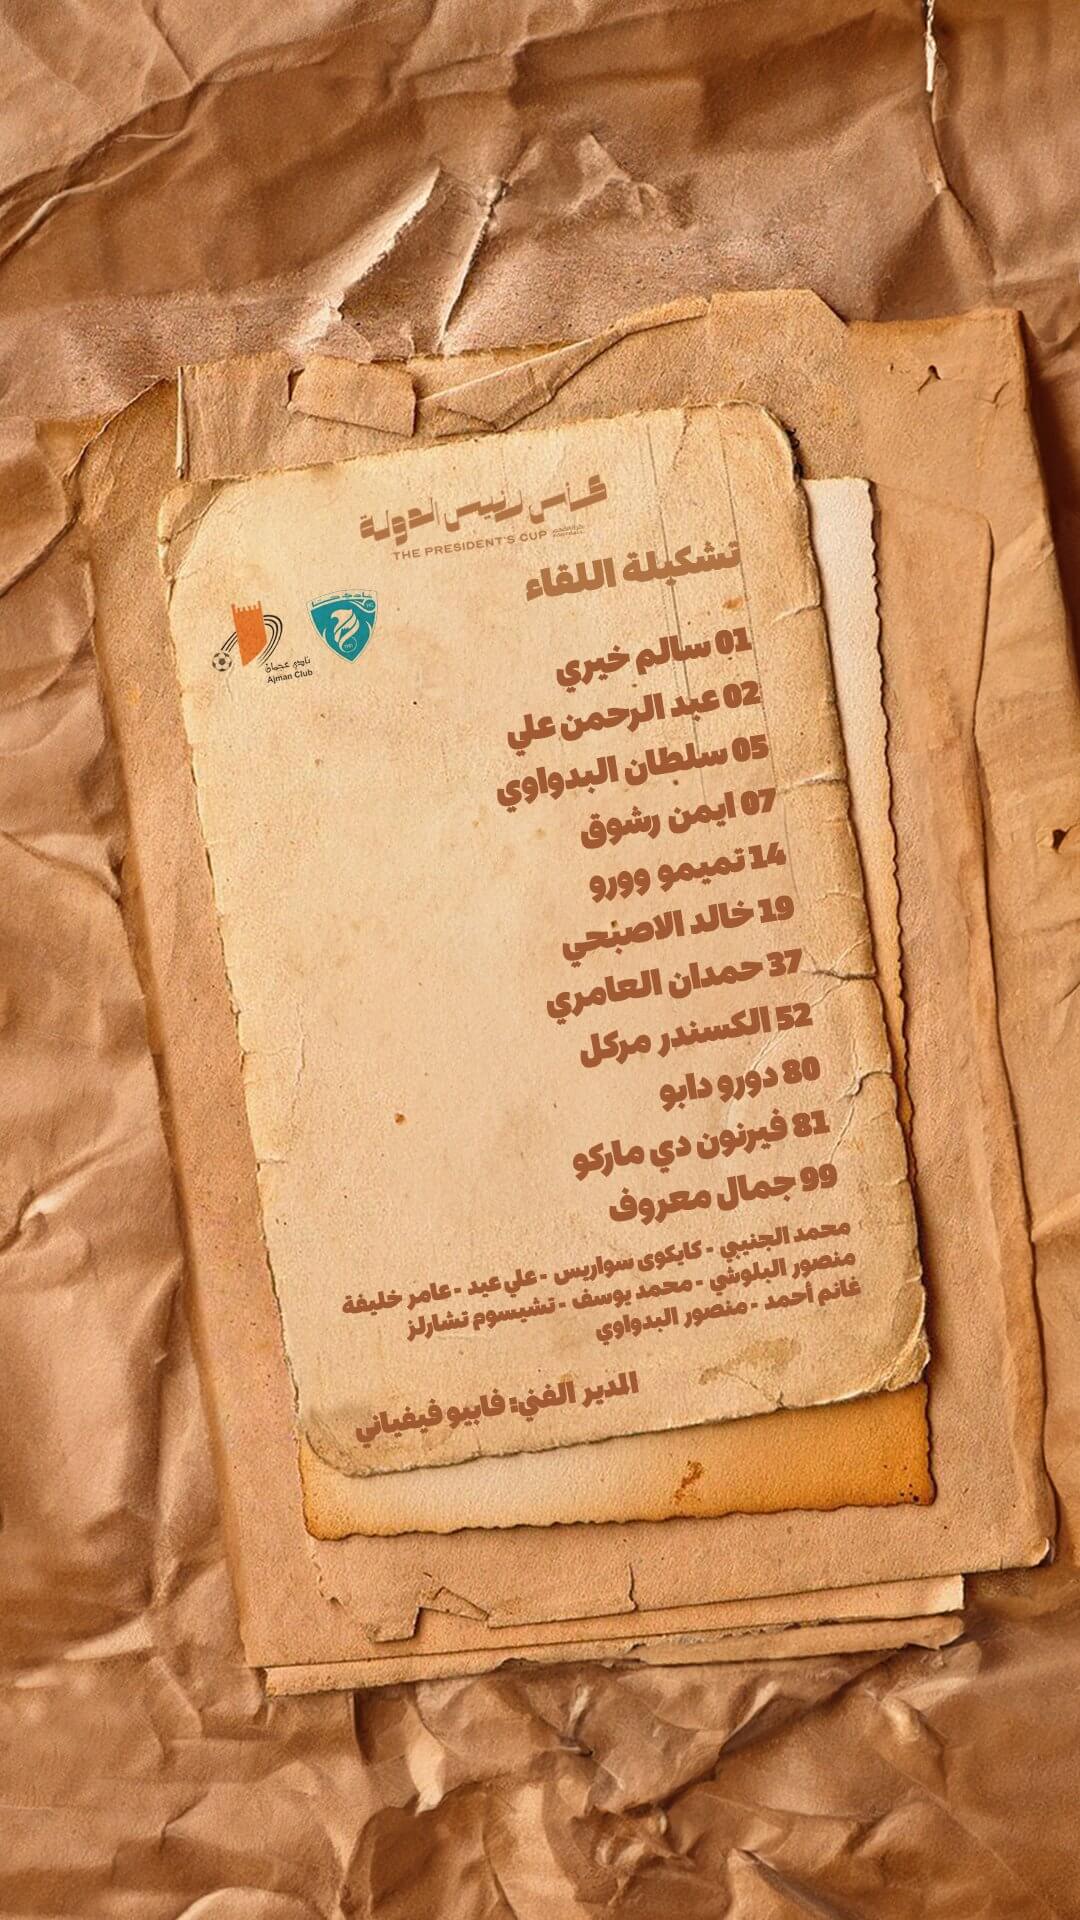 كأس رئيس الدولة
THE PRESIDENT'S CUP
تشكيلة اللقاء
نادي عجمان
Ajman Club
01 سالم خيري
02 عبد الرحمن علي
05 سلطان البدواوي
07 ايمن رشوق
14 تميمو وورو
19 خالد الاصبحي
37 حمدان العامري
52 الكسندر مركل
80 دورو دابو
81 فيرنون دي ماركو
99 جمال معروف
محمد الجنيبي - كايكوى سواريس - علي عيد - عامر خليفة
منصور البلوشي - محمد يوسف - تشيسوم تشارلز
غانم أحمد - منصور البدواوي
المدير الفني: فابيو فيفياني